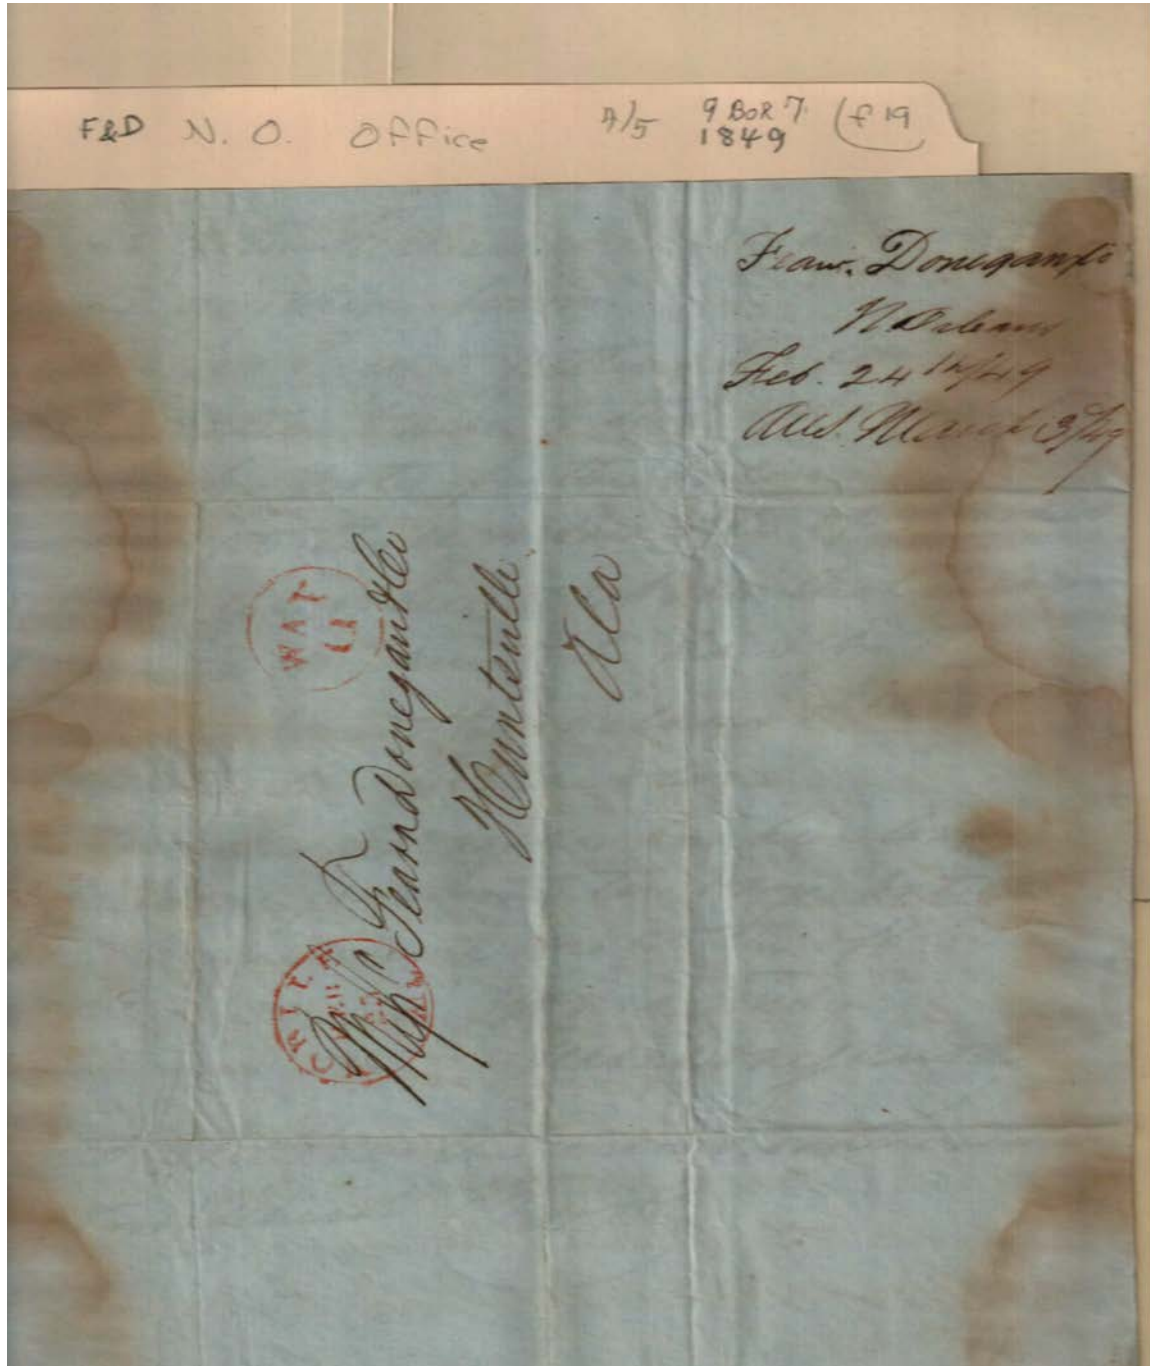 F&D N. O. Office 4/5 9 Box 7 (f 19
1849
Fearn. Donegan & Co
N Orleans
Feb. 24th/49
Ans. March 3/49
WAY
11
Fearn Donegan & Co
Huntsville
Ala